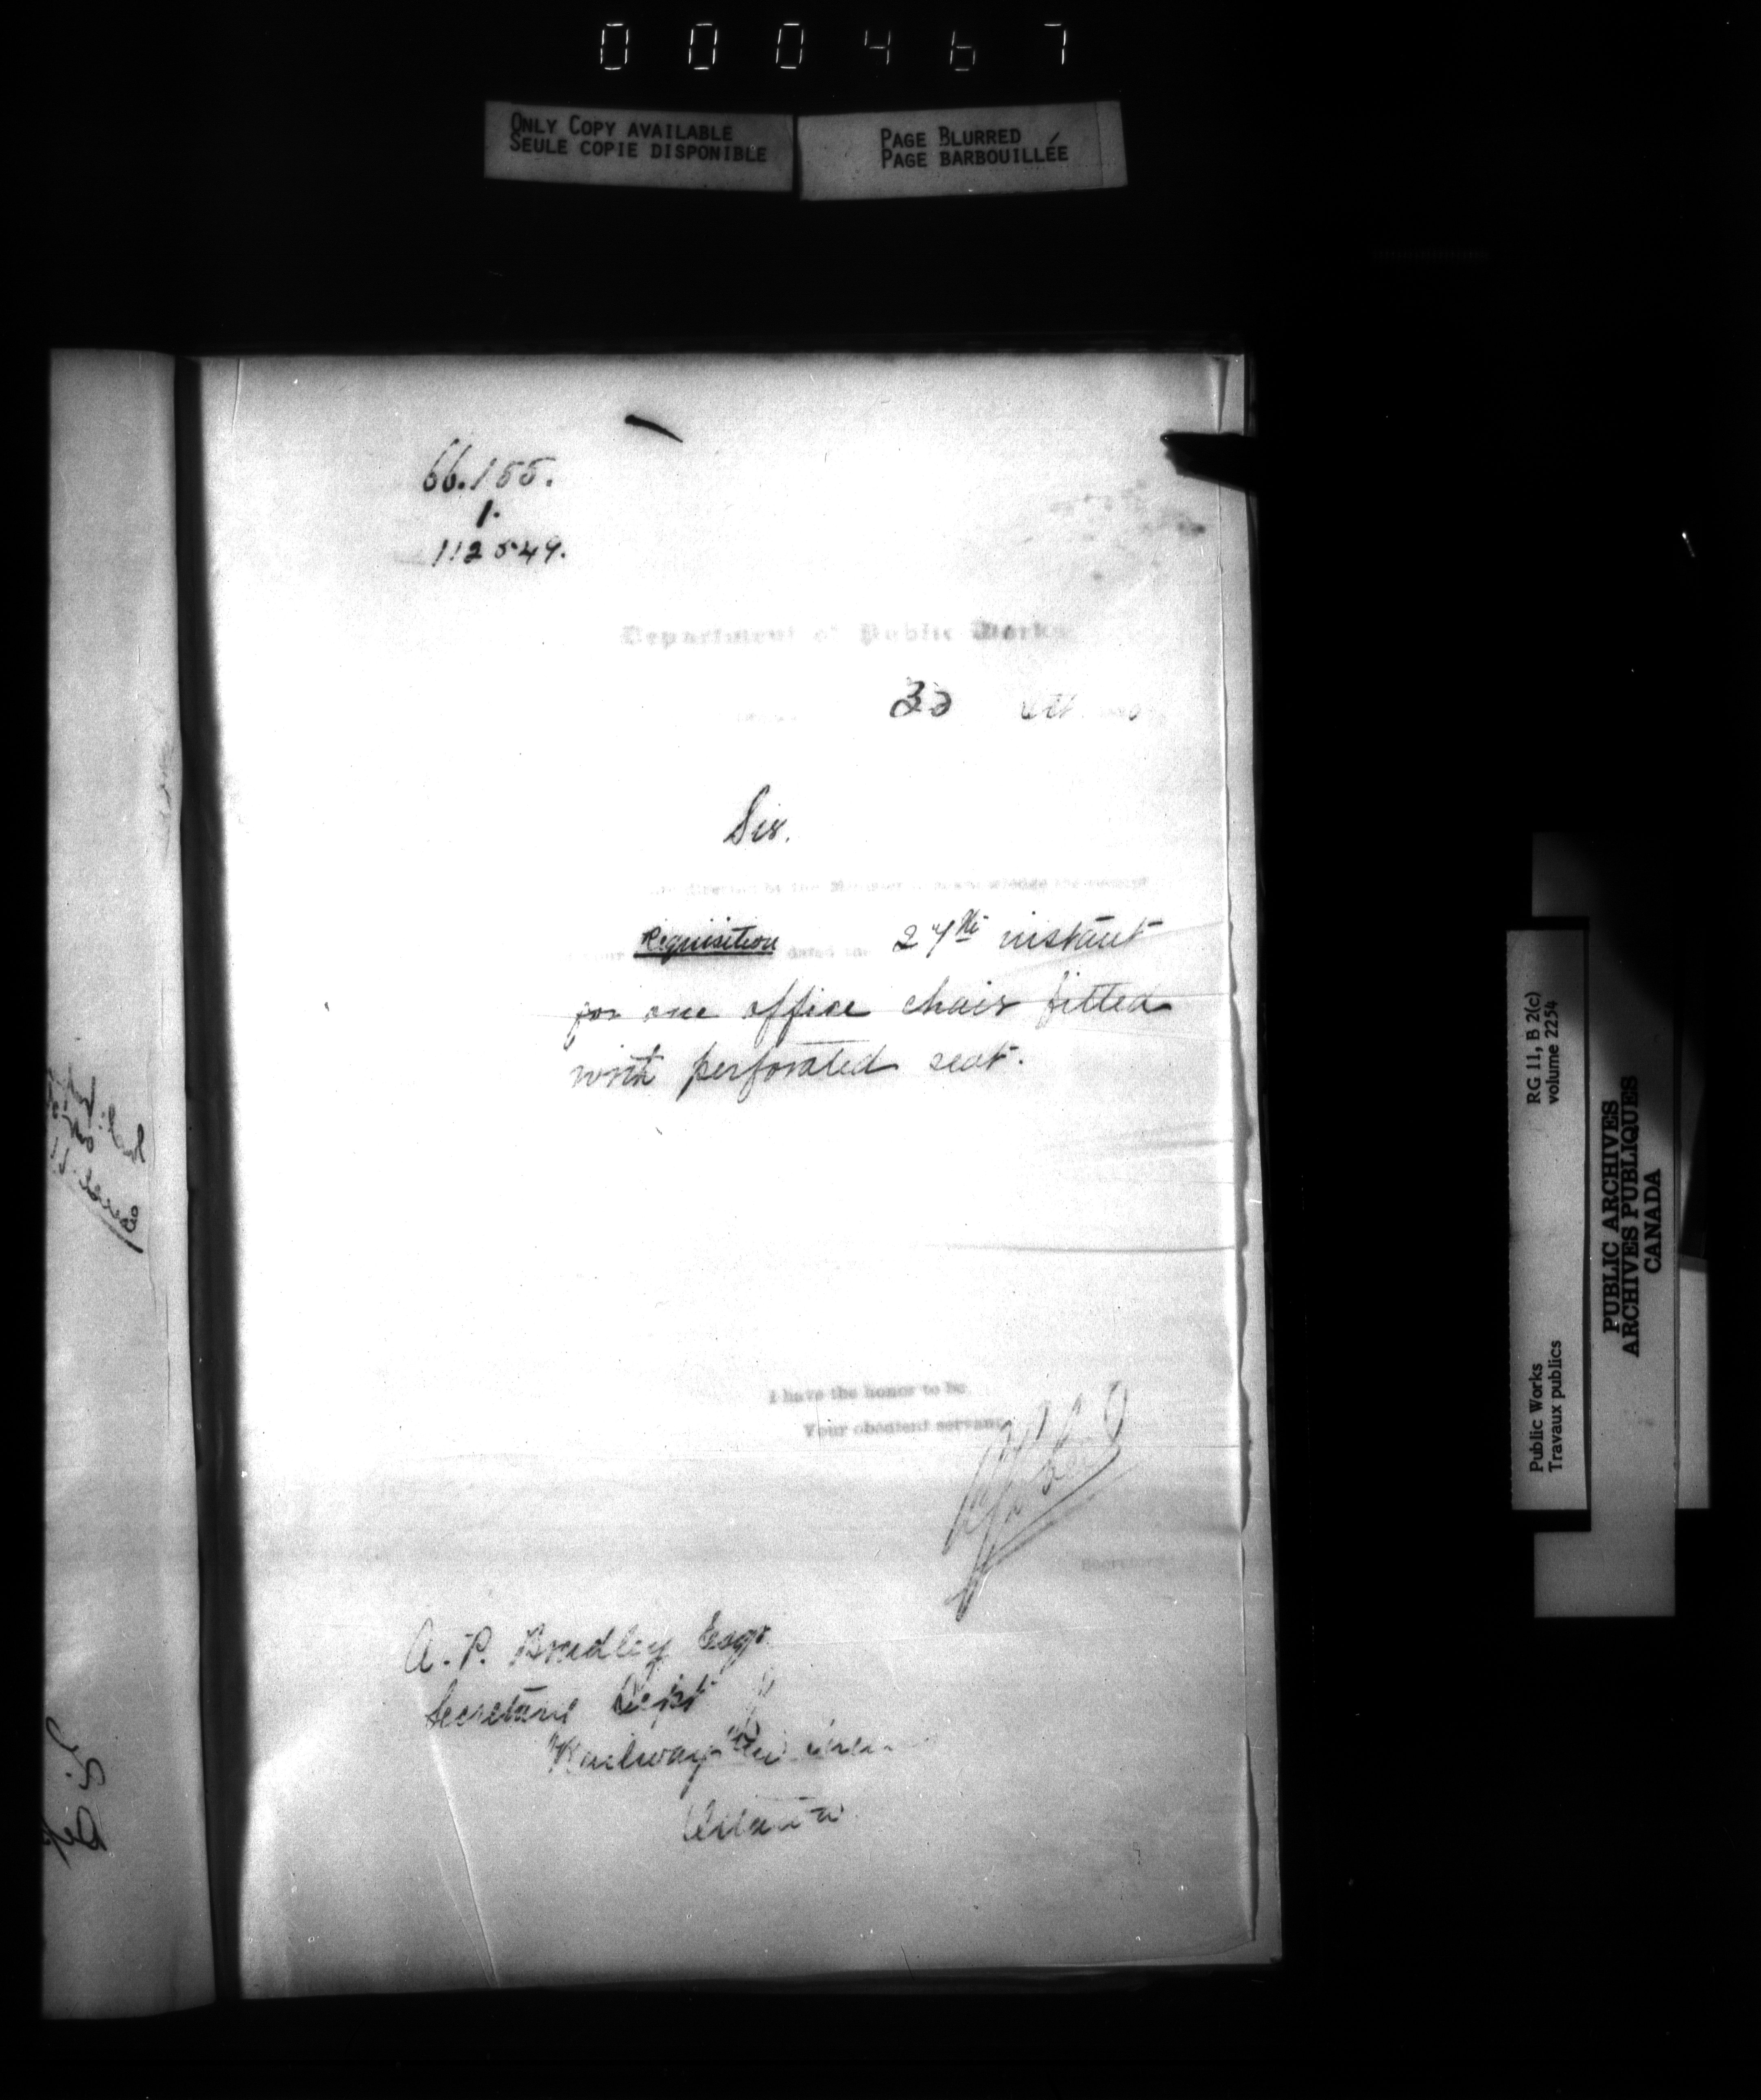 000467
ONLY COPY AVAILABLE
SEULE COPIE DISPONIBLE
PAGE BLURRED
PAGE BARBOUILLÉE
66.155.
1.
112549.
Department of Public Works
30 Oct
Sir.
directed by the Minister acknowledge the receipt
your Requisition dated the 27th instant
for one office chair fitted
with perforated seat.
I have the honor to be
Your obedient servant
Secretary
A. P. Bradley Esqr
Secretary Dept of
Railways
Ottawa
RG 11, B 2(c)
volume 2254
Public Works
Travaux publics
PUBLIC ARCHIVES
ARCHIVES PUBLIQUES
CANADA